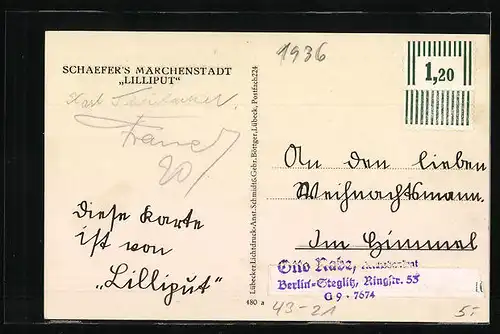 1936
SCHAEFER'S MÄRCHENSTADT
„LILLIPUT"
1,20
Karl
20
Diese Karte
ist von
„Lilliput"
Lübecker Lichtdruck-Anst. Schmidt & Gebr. Böttger, Lübeck, Postfach 224
An den lieben
Weihnachtsmann.
Im Himmel
Otto Rabe,
Berlin-Steglitz, Ringstr. 53
G 9 - 7674
480 a
43-21
5.-